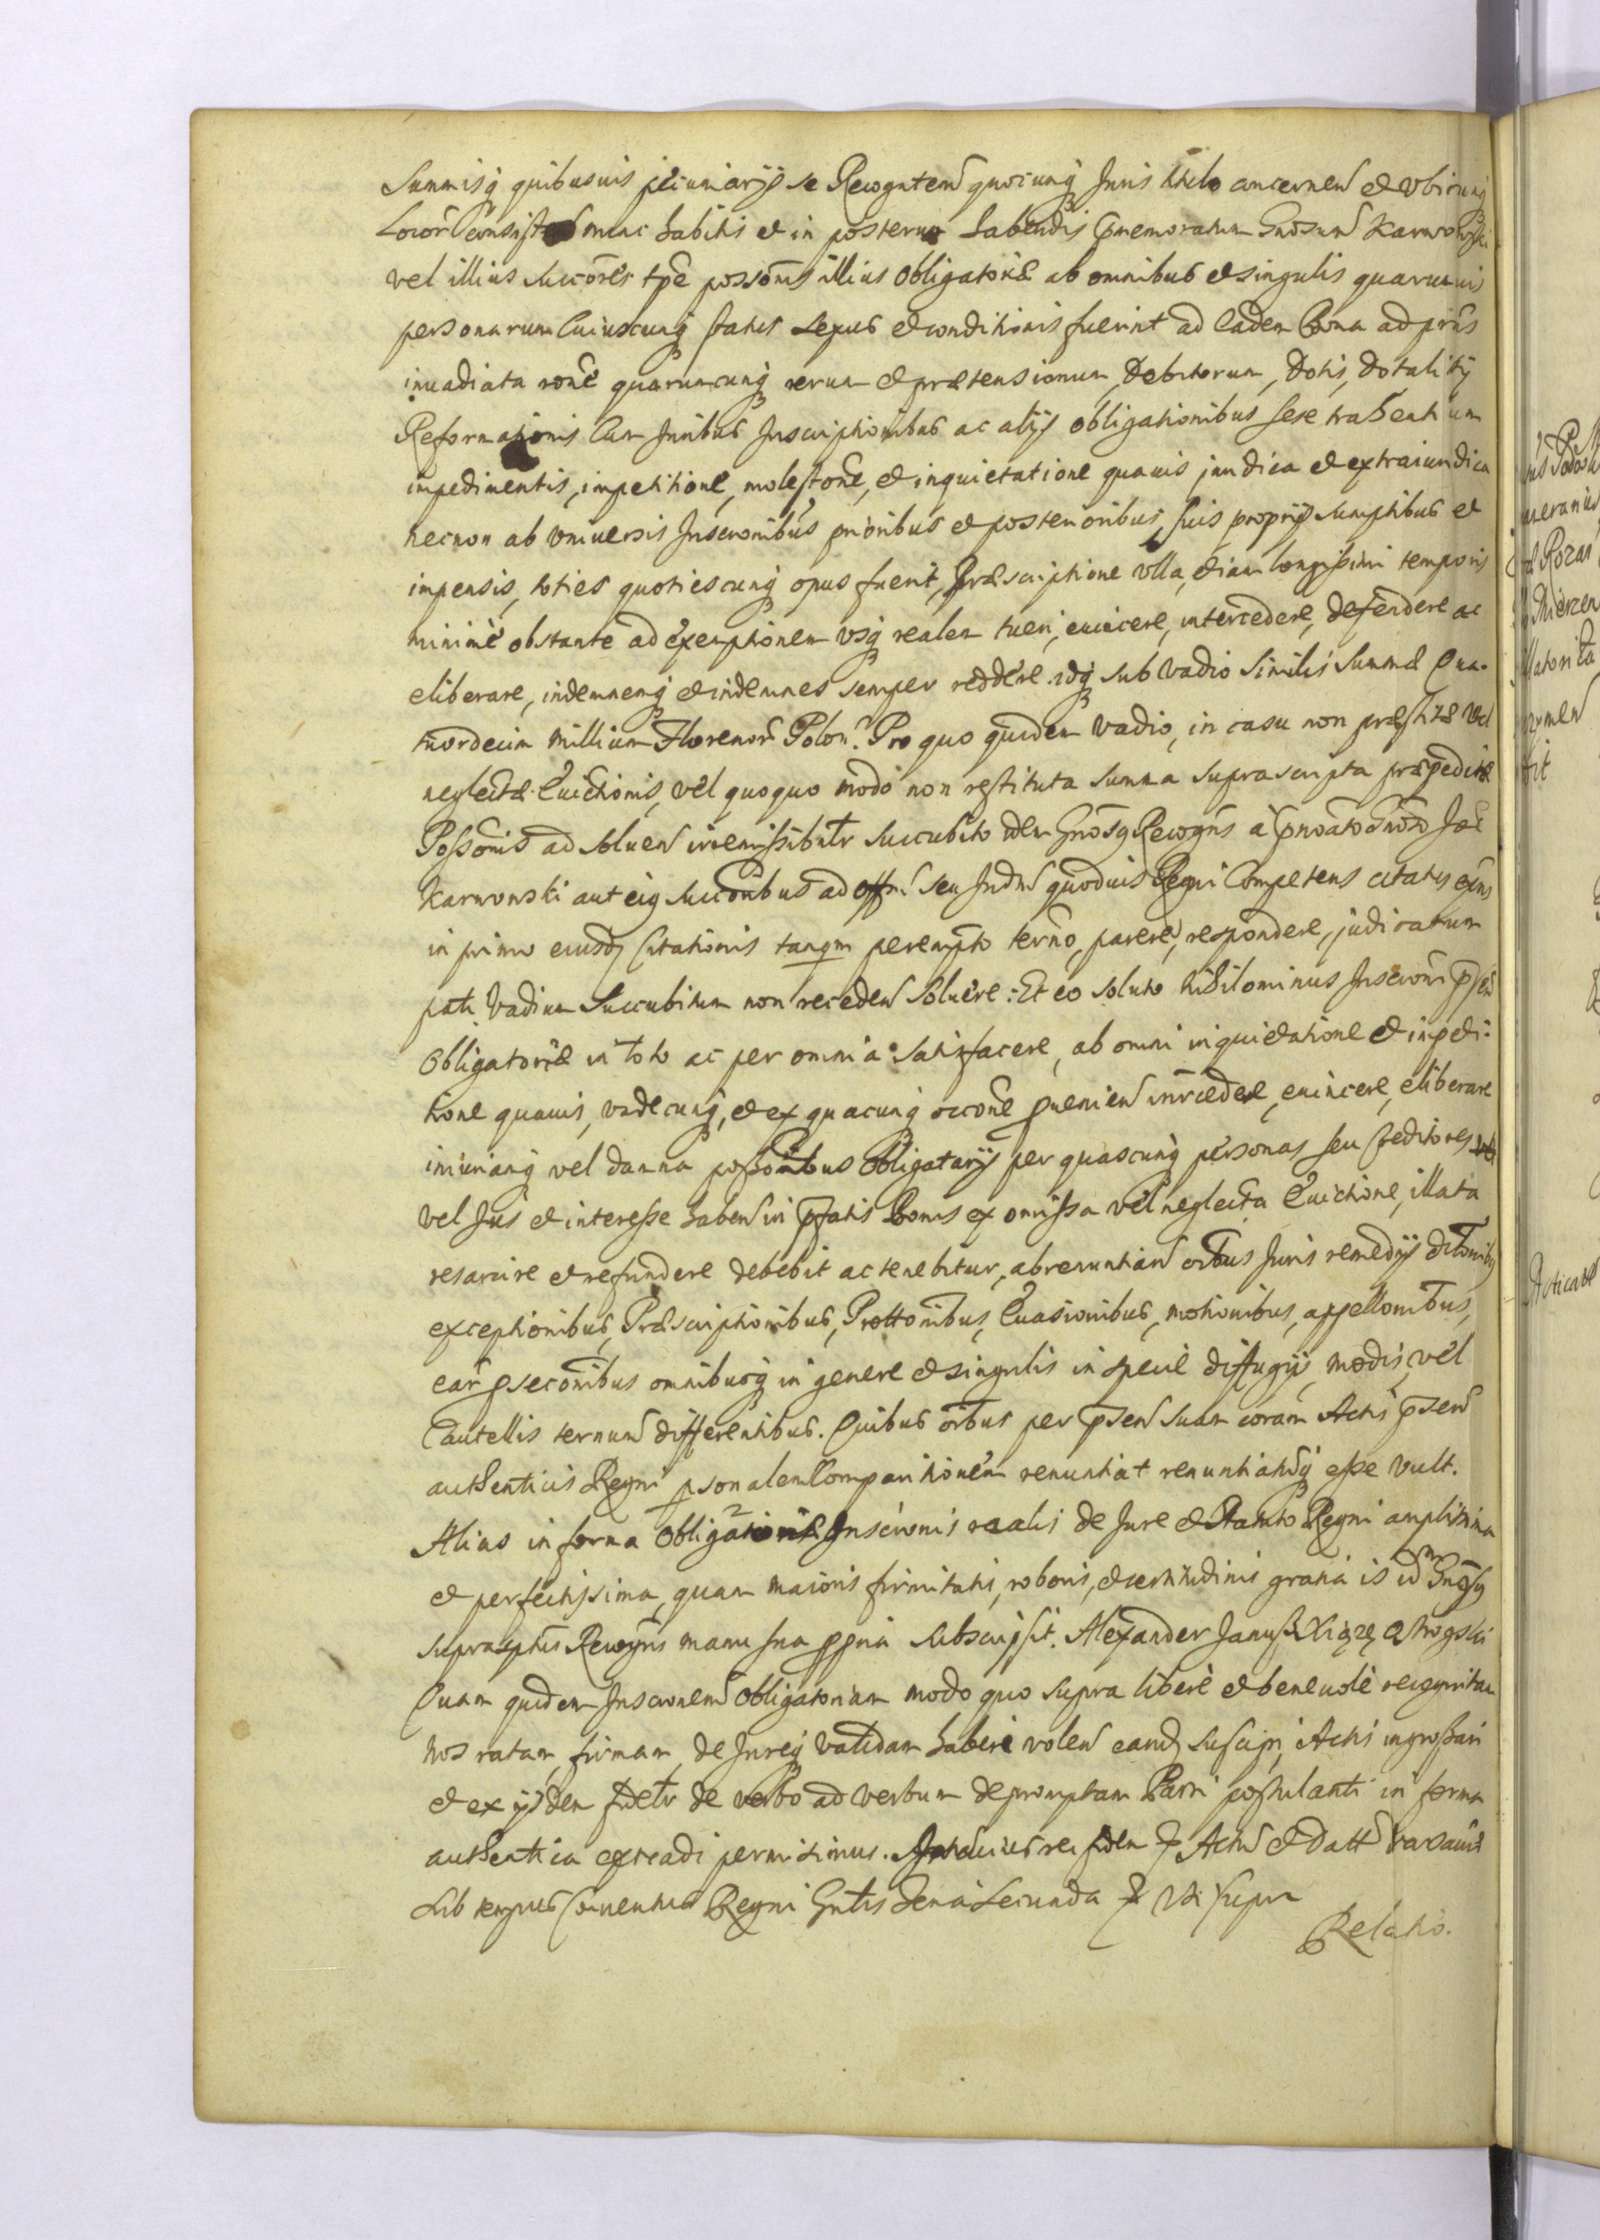 Summisq quibusuis pecuniarijs se Recogntem quocunq Juris titulo concernen et vbicunq
Locor consisten nunc habitis et in posterum habendis prnemoratum Gnosum Karwowski
vel illius succores tpe possonis illius obligatoriæ ab omnibus et singulis quarumuis
personarum cuiuscunq status sexus et conditionis fuerint ad eadem bona ad prns
inuadiata rone quarumcunq rerum et prætensionum, Debitorum, Dotis, Dotalitij
Reformationis cum Juribus Inscriptionibus ac alijs obligationibus sese trahentium
impedimentis, impetitione, molestone, et inquietatione quauis juridica et extraiuridica
necnon ab vniuersis Inscronibus prioribus et posterioribus, suis proprijs sumptibus et
impensis, toties quotiescunq opus fuerit, Præscriptione vlla, etiam longissimi temporis
minimè obstante ad exemptionem vsq realem tueri, euincere, intercedere, defendere ac
eliberare, indemnemq et indemnes semper reddere idq sub vadio similis summæ Qua-
tuordecim millium Florenor Polon. Pro quo quidem vadio, in casu non præstitæ vel
neglectæ Euictionis, vel quoquo modo non restituta summa suprascripta præpeditæ
Possonis ad soluen irremissibiltr succubito idem Gnosq Recogns à prnoato Gnoso Jae
Karwowski aut eiq succoribus ad offm seu Judm quoduis Regni Competens citatus exns
in primo eiusdq Citationis tanqm perempto termo, parere, respondere, judicatum
pati Vadium succubitum non receden soluere: Et eo soluto nihilominus Inscroni prsen
Obligatoriæ in toto ac per omnia satisfacere, ab omni inquietatione et impedi-
tione quauis, vndecunq, et ex quacunq occone puenien inrcedere, euincere, eliberare
iniuriamq vel damna possoribus Obligatarijs per quascunq personas seu creditores
vel Jus et interesse haben in pfatis bonis ex omissa vel neglecta Euictione, illata
resarcire et refundere debebit ac tenebitur, abrenuntian oibus Juris remedijs dilonibq
exceptionibus, Præscriptionibus, Prottonibus, Euasionibus, motionibus, appellonibus,
ear psecoribus omnibusq in genere et singulis in specie diffugijs, modis, vel
Cautellis ternum differentibus. Quibus oibus per prsen suam coram Actis prsen
authenticis Regni psonalem Comparitionem renuntiat renuntiatuq esse vult.
Alias in forma Obligatoriæ Inscronis realis de Jure et Statuto Regni amplissima
et perfectissima, quam maioris firmitatis, roboris, et certitudinis gratia is idm Gnosq
suprasptus Recogns manu sua ppria subscripsit. Alexander Janusz Xiążę Ostrogski
Quam quidem Inscronem Obligatoriam modo quo supra liberè et beneuolè recognitam
nos ratam, firmam, de Jureq validam haberi volen eandq suscipi, Actis ingrossari
et ex ijsdem fidetr de verbo ad verbum depromptam Parti postulanti in forma
authentica extradi permisimus. In cuius rei fidem Actm et Datt Varsauiæ
sub tempus Conuentus Regni Gnlis Feria Secunda vt supra
Relatio.